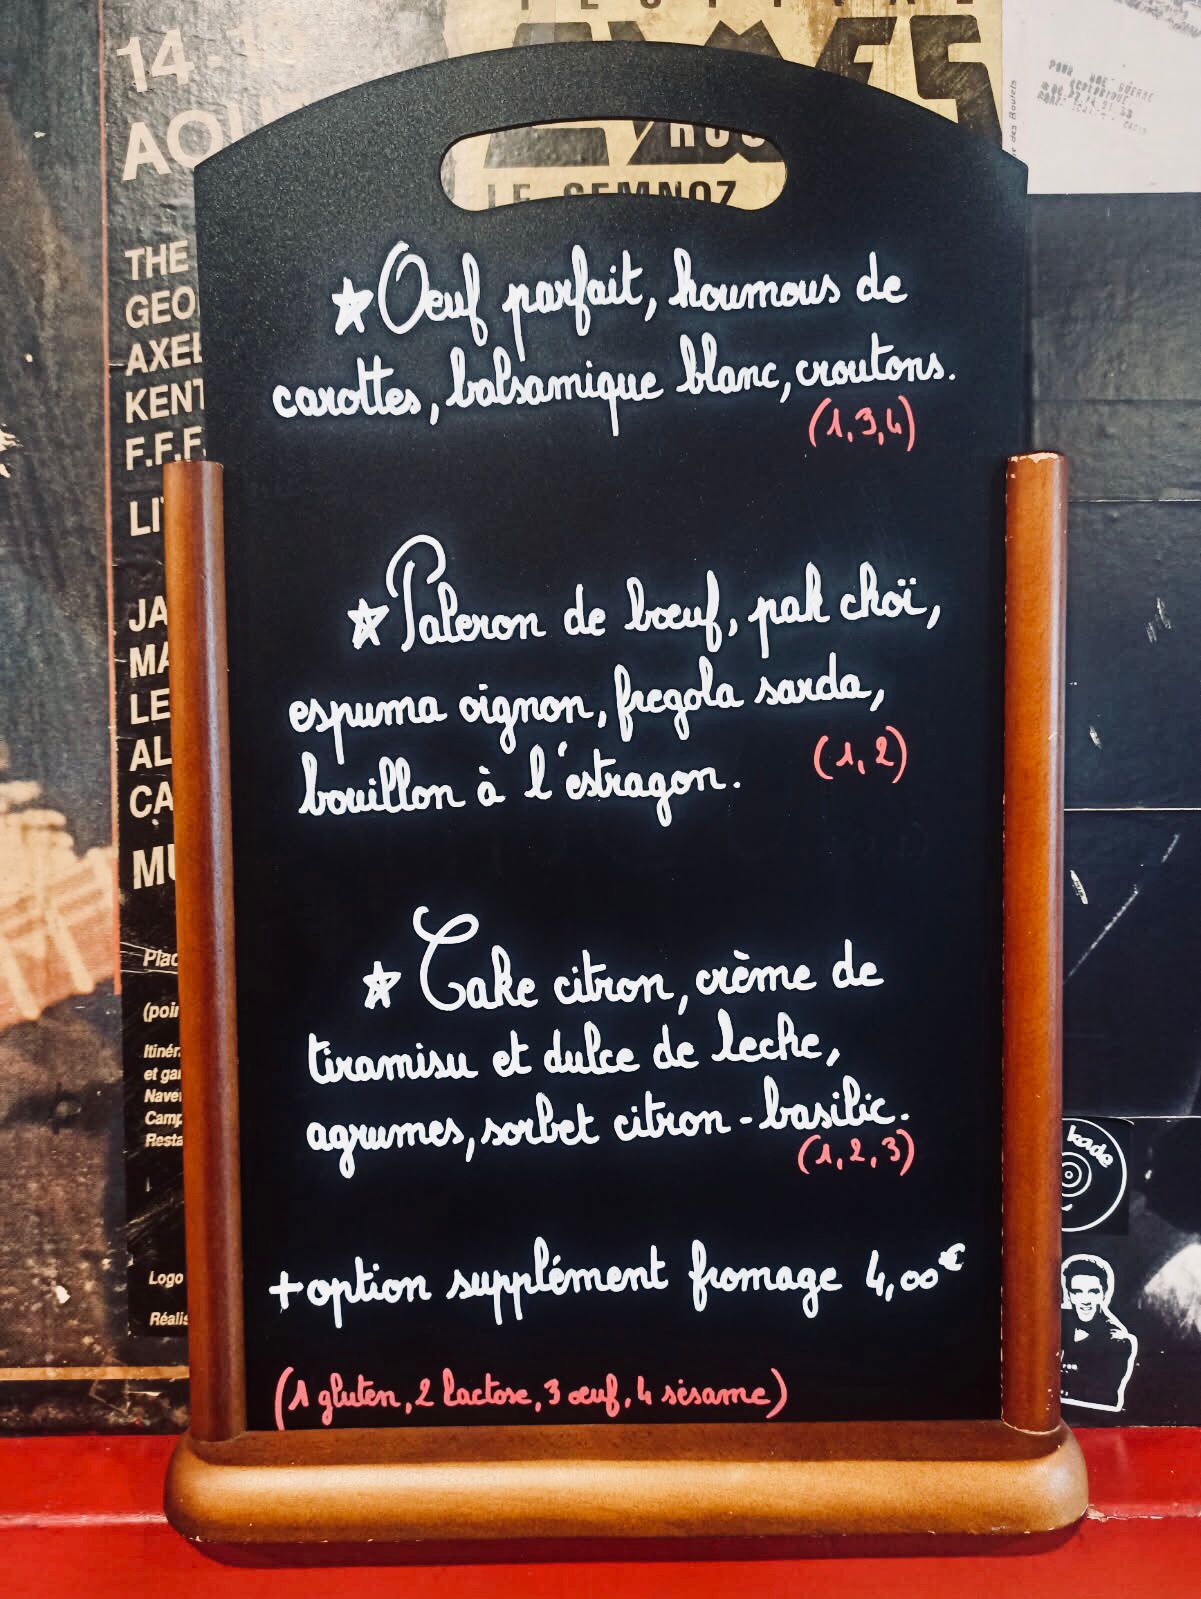 FESTIVAL
14-15
AOU
ROC
LE SEMNOZ
POUR UNE GUERRE
ECOLOGIQUE
des Roulets
THE
GEO
AXEL
KENT
F.F.F.
LI
JA
MA
LE
AL
CA
MU
Plac
(poin
Itinér
et ga
Nave
Camp
Resta
Logo
Réalis
★ Oeuf parfait, houmous de
carottes, balsamique blanc, croutons.
(1,3,4)
★ Paleron de bœuf, pak choï,
espuma oignon, fregola sarda,
bouillon à l'estragon. (1,2)
★ Cake citron, crème de
tiramisu et dulce de leche,
agrumes, sorbet citron-basilic.
(1,2,3)
+ option supplément fromage 4,00€
(1 gluten, 2 lactose, 3 œuf, 4 sésame)
kade